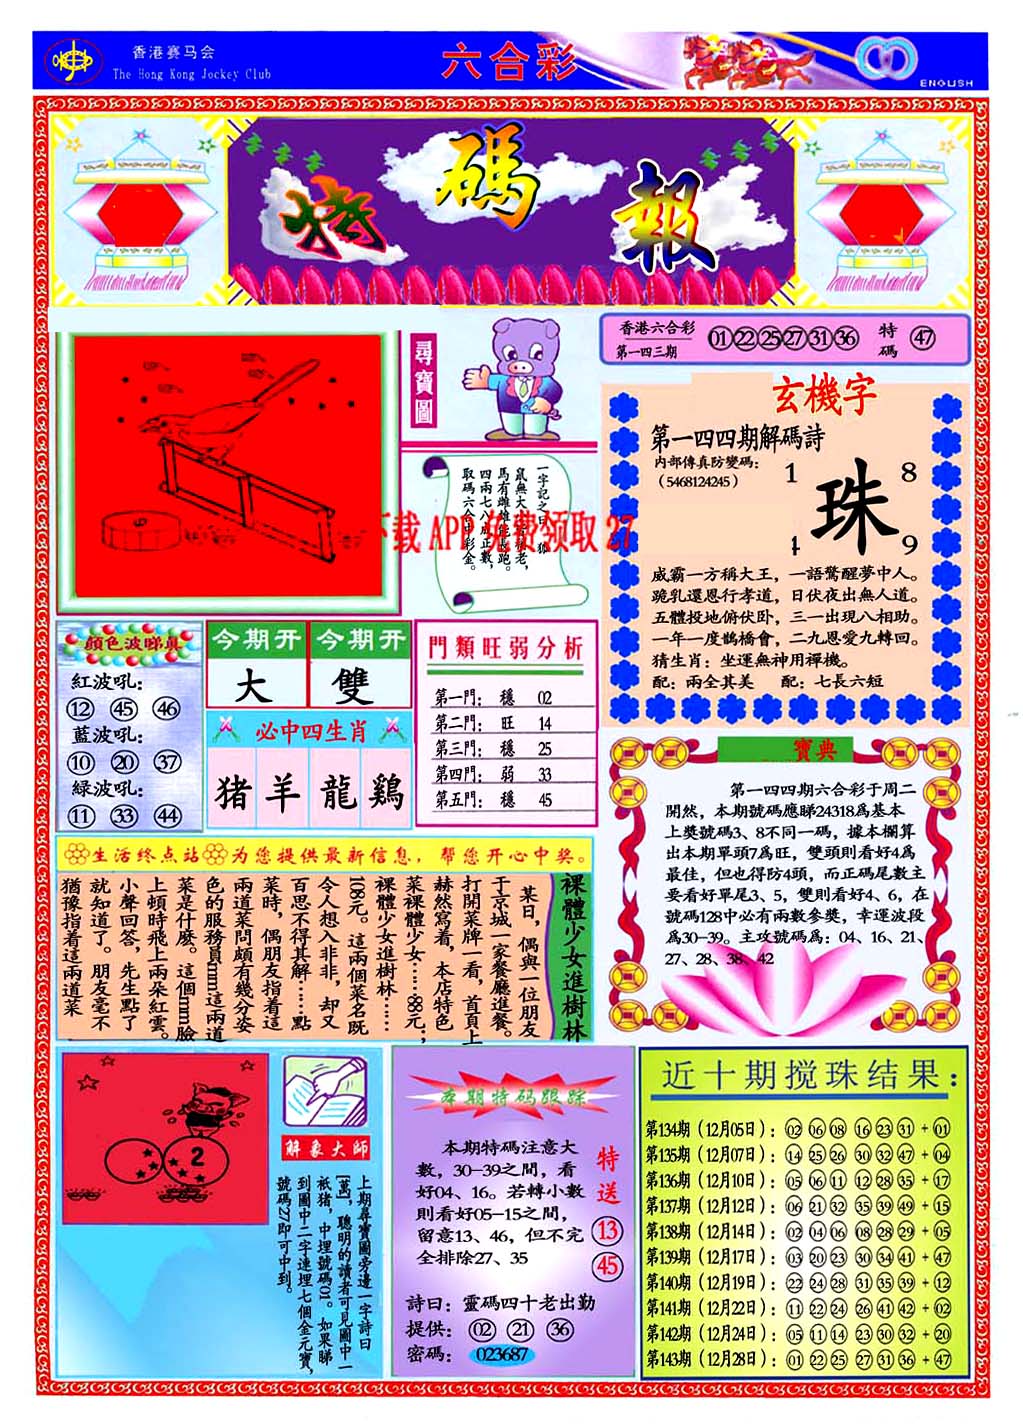 香港赛马会
The Hong Kong Jockey Club
六合彩
ENGLISH
特碼報
尋寶圖
香港六合彩
第一四三期
01 22 25 27 31 36
特碼
47
玄機字
第一四四期解碼詩
内部傳真防變碼:
(5468124245)
1 8
珠
4 9
威霸一方稱大王，一語驚醒夢中人。
跪乳還恩行孝道，日伏夜出無人道。
五體投地俯伏卧，三一出現八相助。
一年一度鵲橋會，二九恩愛九轉回。
猜生肖：坐運無神用禪機。
配：兩全其美 配：七長六短
一字記之曰
馬有雌雄能長跑。
四兩七八成正數，
取碼六合中彩金。
下载 APP 免费领取 27
顏色波睇真
紅波吼:
12 45 46
藍波吼:
10 20 37
緑波吼:
11 33 44
今期开 今期开
大 雙
必中四生肖
猪 羊 龍 鷄
門類旺弱分析
第一門： 穩 02
第二門： 旺 14
第三門： 穩 25
第四門： 弱 33
第五門： 穩 45
寶典
第一四四期六合彩于周二
開然，本期號碼應睇24318爲基本
上獎號碼3、8不同一碼，據本欄算
出本期單頭7爲旺，雙頭則看好4爲
最佳，但也得防4頭，而正碼尾數主
要看好單尾3、5，雙則看好4、6，在
號碼128中必有兩數參獎，幸運波段
爲30-39。主攻號碼爲：04、16、21、
27、28、38、42
生活终点站 为您提供最新信息，帮您开心中奖。
裸體少女進樹林
某日，偶與一位朋友
于京城一家餐廳進餐。
打開菜牌一看，首頁上
赫然寫着，本店特色
菜裸體少女……88元；
裸體少女進樹林……
108元。這兩個菜名既
令人想入非非，却又
百思不得其解……點
菜時，偶朋友指着這
兩道菜問頗有幾分姿
色的服務員mm這兩道
菜是什麽。這個mm臉
上頓時飛上兩朵紅雲。
小聲回答，先生點了
就知道了。朋友毫不
猶豫指着這兩道菜
2
解象大師
上期尋寶圖旁邊一字詩曰
[萬]，聰明的讀者可見圖中一
祇猪，中埋號碼01。如果睇
到圖中二字連埋七個金元寶，
號碼27即可中到。
本期特码跟踪
本期特碼注意大
數，30-39之間，看
好04、16。若轉小數
則看好05-15之間，
留意13、46，但不完
全排除27、35
特送
13
45
詩曰：靈碼四十老出勤
提供： 02 21 36
密碼： 023687
近十期搅珠结果：
第134期（12月05日）：02 06 08 16 23 31 + 01
第135期（12月07日）：14 25 26 30 32 47 + 04
第136期（12月10日）：05 06 11 12 28 35 + 17
第137期（12月12日）：06 21 32 35 39 49 + 15
第138期（12月14日）：02 04 06 08 28 29 + 05
第139期（12月17日）：03 20 23 30 34 41 + 47
第140期（12月19日）：22 24 28 31 35 39 + 12
第141期（12月22日）：11 22 24 26 41 42 + 02
第142期（12月24日）：05 11 14 23 30 32 + 20
第143期（12月28日）：01 22 25 27 31 36 + 47